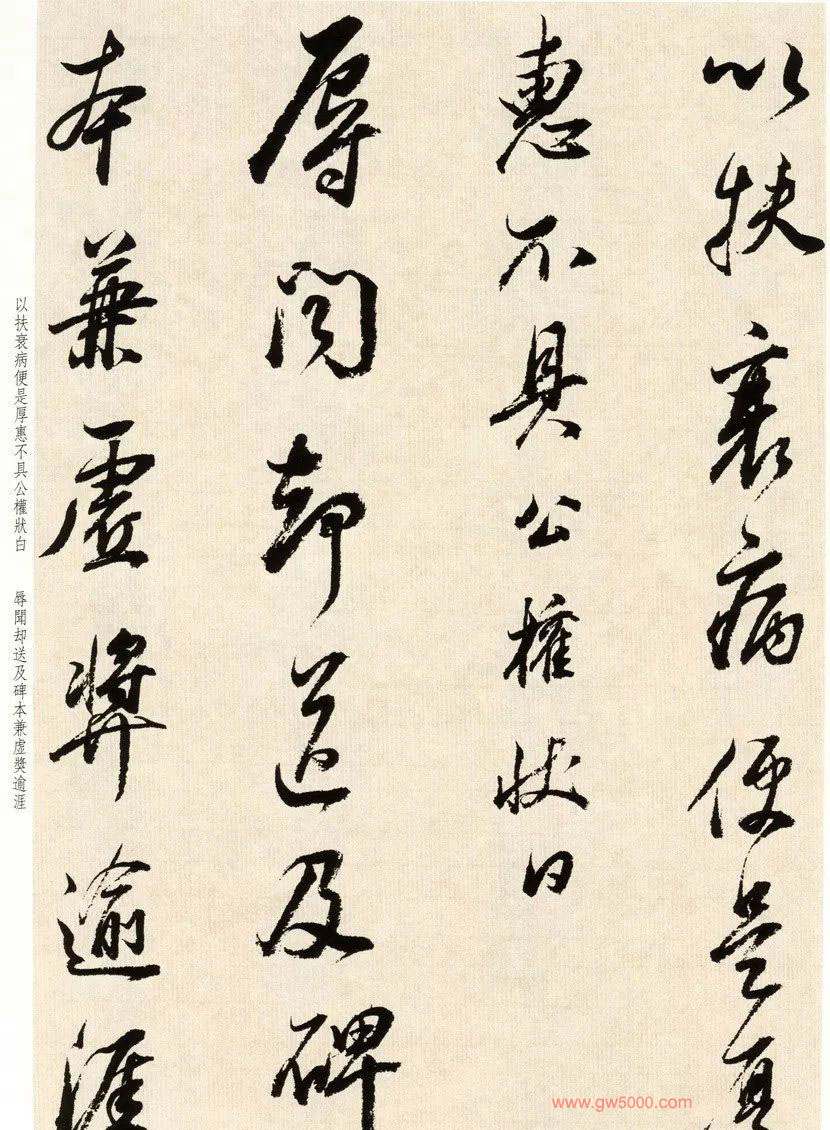 以扶衰病便是厚
惠不具公權狀白
辱問却送及碑
本兼虛奨逾涯
以扶衰病便是厚惠不具公權狀白 辱聞却送及碑本兼虛獎逾涯
www.gw5000.com